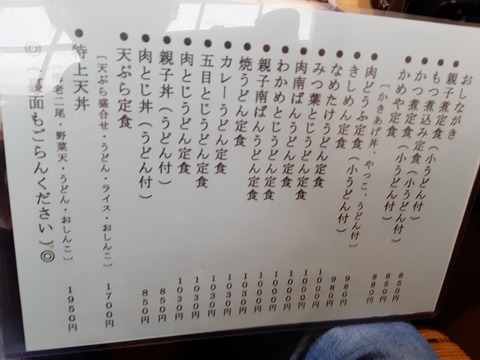 おしながき
●親子煮定食(小うどん付) 850円
●もつ煮定食(小うどん付) 850円
●かつ煮込み定食(小うどん付) 880円
●かめや定食 880円
〔かきあげ丼、やっこ、うどん付〕
●肉どうふ定食(小うどん付) 980円
●きしめん定食 980円
●なめたけうどん定食 1000円
●みつ葉とじうどん定食 1000円
●肉南ばんうどん定食 1000円
●わかめとじうどん定食 1000円
●親子南ばんうどん定食 1000円
●焼うどん定食 1030円
●カレーうどん定食 1030円
●五目とじうどん定食 1030円
●肉とじうどん定食 1030円
●親子丼(うどん付) 850円
●肉とじ丼(うどん付) 850円
●天ぷら定食 1700円
〔天ぷら盛合せ・うどん・ライス・おしんこ〕
●特上天丼 1950円
老二尾・野菜天・うどん・おしんこ〕
◎(裏面もごらんください)◎